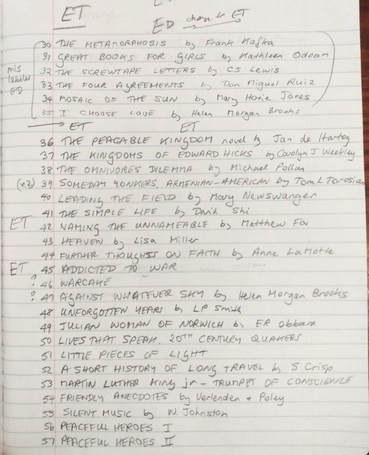 ET
ED change to ET
mis labeled ED
30 THE METAMORPHOSIS by Frank Kafka
31 GREAT BOOKS FOR GIRLS by Kathleen Odean
32 THE SCREWTAPE LETTERS by CS Lewis
33 THE FOUR AGREEMENTS by Don Miguel Ruiz
34 MOSAIC OF THE SUN by Mary Jones
35 I CHOOSE LOVE by Helen Morgan Brooks
ET ET
36 THE PEACABLE KINGDOM novel by Jan de Hartog
37 THE KINGDOMS OF EDWARD HICKS by Carolyn J Weekley
38 THE OMNIVORES DILEMMA by Michael Pollan
(x2) 39 SOMEDAY YONKERS, ARMENIAN-AMERICAN by Tom L Torosian
40 LEADING THE FIELD by Mary Newswanger
41 THE SIMPLE LIFE by David Shi
ET 42 NAMING THE UNNAMEABLE by Matthew Fox
43 HEAVEN by Lisa Miller
44 FURTHER THOUGHTS ON FAITH by Anne LaMotte
ET 45 ADDICTED TO WAR
? 46 WARCAME
? 47 AGAINST WHATEVER SKY by Helen Morgan Brooks
48 UNFORGOTTEN YEARS by LP Smith
49 JULIAN WOMAN OF NORWICH by ER Obbard
50 LIVES THAT SPEAK, 20TH CENTURY QUAKERS
51 LITTLE PIECES OF LIGHT
52 A SHORT HISTORY OF LONG TRAVEL by S Crisp
53 MARTIN LUTHER King jr - TRUMPET OF CONSCIENCE
54 FRIENDLY ANECDOTES by Verlenden + Poley
55 SILENT MUSIC by W. Johnston
56 PEACEFUL HEROES I
57 PEACEFUL HEROES II